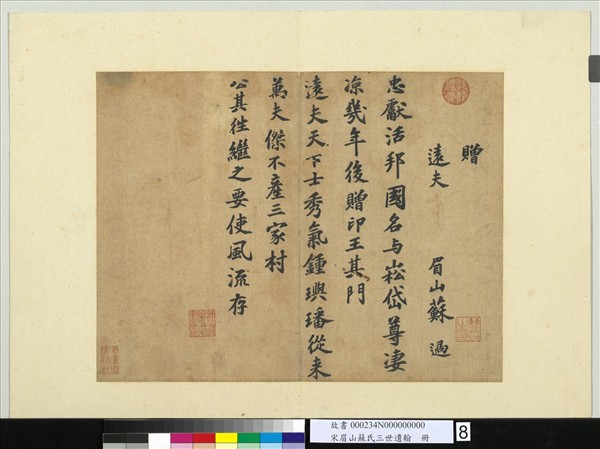 贈
遠夫 眉山蘇過
忠獻活邦國名与崧岱尊凄
凉幾年後贈印王其門
遠夫天下士秀氣鍾璵璠從来
萬夫傑不產三家村
公其往繼之要使風流存
故書 000234N000000000
宋眉山蘇氏三世遺翰 冊
8